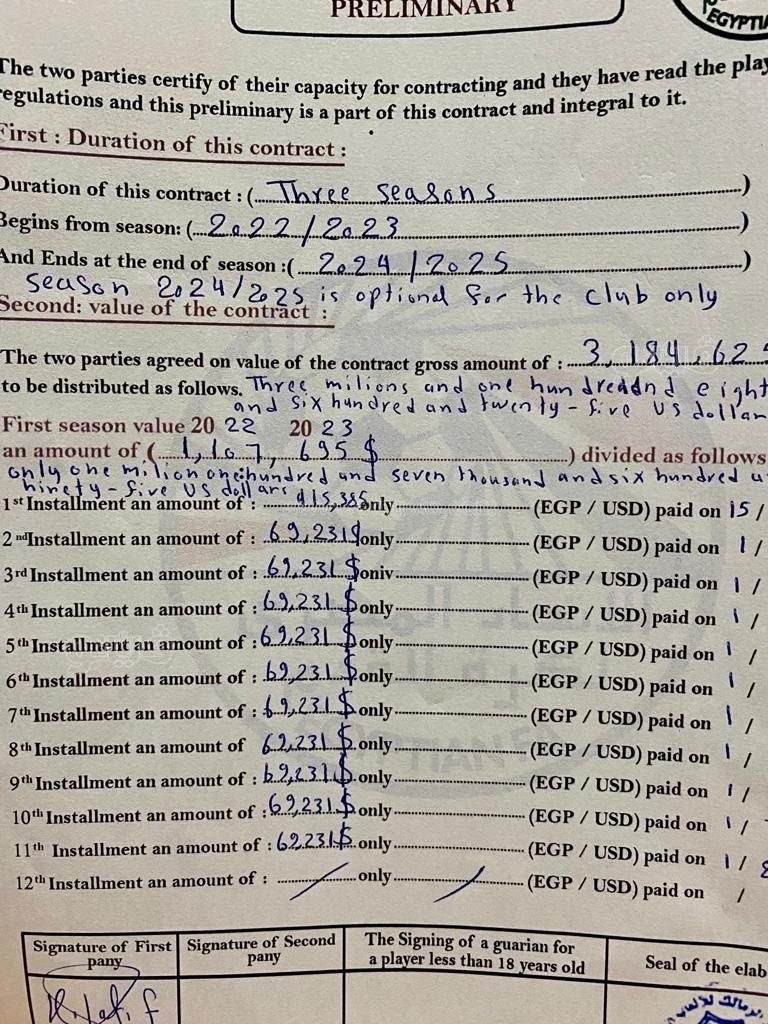 PRELIMINARY
EGYPTIA
The two parties certify of their capacity for contracting and they have read the play
regulations and this preliminary is a part of this contract and integral to it.
First : Duration of this contract :
Duration of this contract : (...Three seasons...)
Begins from season: (...2022/2023...)
And Ends at the end of season :(...2024/2025...)
season 2024/2025 is optional for the club only
Second: value of the contract :
The two parties agreed on value of the contract gross amount of : ...3,184,625
to be distributed as follows. Three milions and one hundreadnd eight
and six hundred and twenty-five US dollar
First season value 20 22 20 23
an amount of (...1,107,695 $...) divided as follows
only one milion one hundred and seven thousand and six hundred a
ninety-five US dollars
1st Installment an amount of : ...415,385 only...(EGP / USD) paid on 15 /
2nd Installment an amount of : .69,231$only...(EGP / USD) paid on 1 /
3rd Installment an amount of : .69,231 $oniv...(EGP / USD) paid on 1 /
4th Installment an amount of : .69,231 $only...(EGP / USD) paid on 1 /
5th Installment an amount of : 69,231 $only...(EGP / USD) paid on 1 /
6th Installment an amount of : 69,231 $only...(EGP / USD) paid on 1 /
7th Installment an amount of : 69,231 $only...(EGP / USD) paid on 1 /
8th Installment an amount of 69,231 $.only...(EGP / USD) paid on 1 /
9th Installment an amount of : 69,231$.only...(EGP / USD) paid on 1 /
10th Installment an amount of :69,231$only...(EGP / USD) paid on 1 /
11th Installment an amount of : 69,231$.only...(EGP / USD) paid on 1 / 8
12th Installment an amount of : .../...only.../...(EGP / USD) paid on /
Signature of First pany
Signature of Second pany
The Signing of a guarian for a player less than 18 years old
Seal of the elab
الزمالك للألعاب